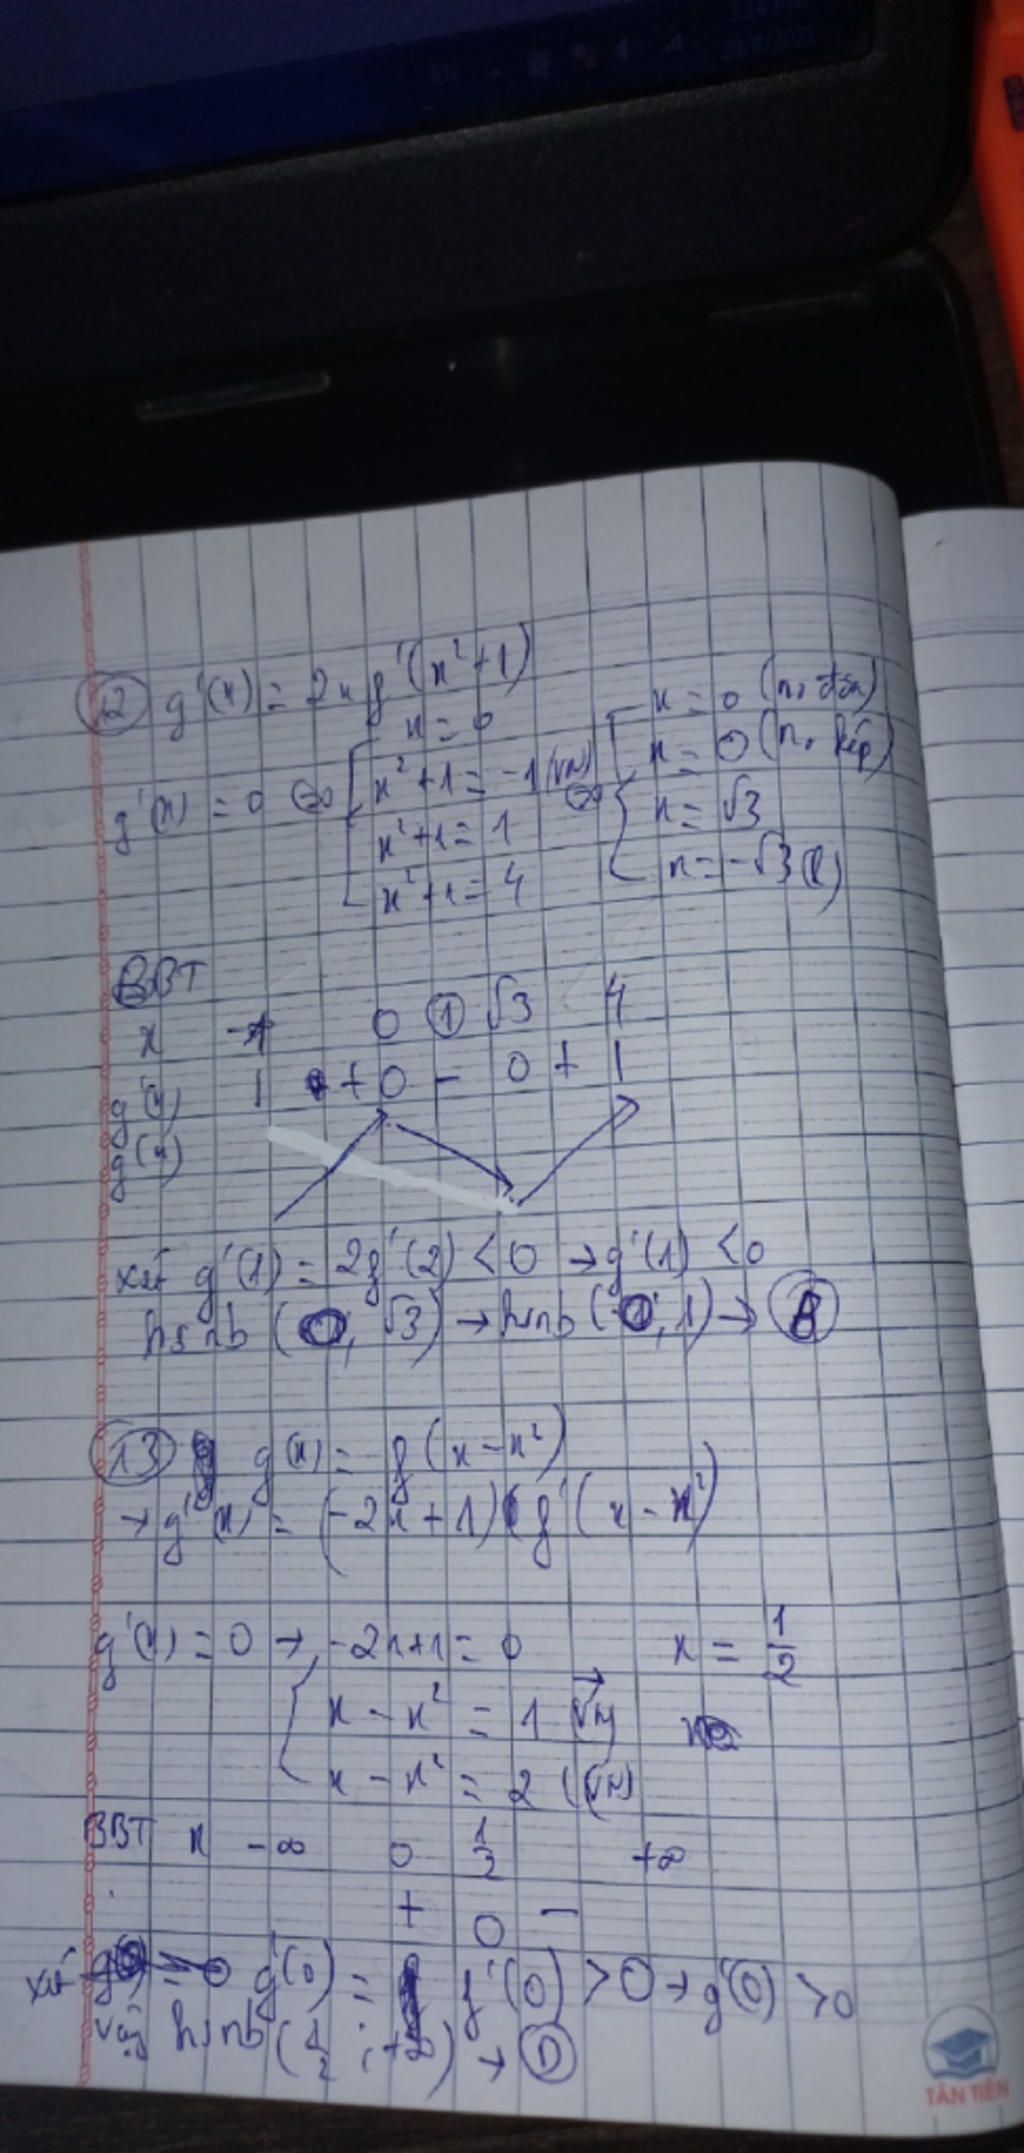 3:14 PM
EN
20/8/2021
12 g'(x) = 2x f'(x²+1)
g'(x) = 0 ⇔ [ x = 0
x²+1 = -1 (VN)
x²+1 = 1
x²+1 = 4
⇔ [ x = 0 (n, đơn)
x = 0 (n, kép)
x = √3
x = -√3 (l)
BBT
x -1 0 1 √3 4
g'(x) | + 0 - 0 + |
g(x)
xét g'(1) = 2f'(2) < 0 → g'(1) < 0
hsnb (0; √3) → hsnb (0; 1) → B
13 g(x) = f(x-x²)
→ g'(x) = (-2x+1) f'(x-x²)
g'(x) = 0 → -2x+1 = 0 x = 1/2
x - x² = 1 (VN)
x - x² = 2 (VN)
BBT x -∞ 0 1/2 +∞
+ 0 -
xét g'(0) = f'(0) > 0 → g'(0) > 0
Vậy hsnb (1/2; +∞) → D
TÂN TIẾN